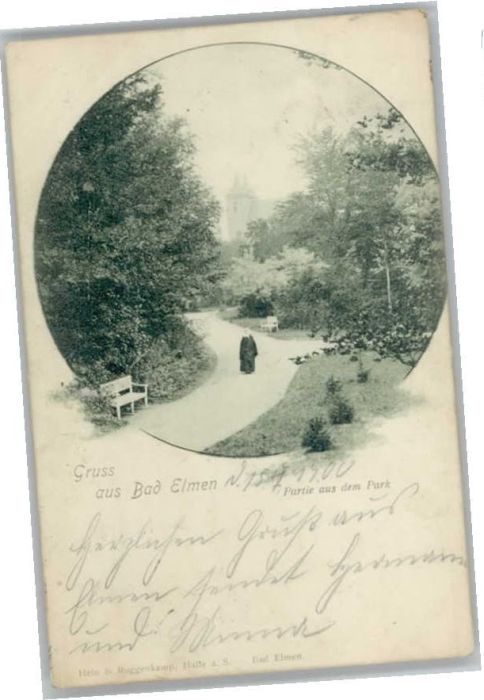 Gruss
aus Bad Elmen d. 15/7 1900
Partie aus dem Park
Herzlichen Gruß aus
Elmen sendet Hermann
und Minna
Hein & Roggenkamp, Halle a. S. Bad Elmen.